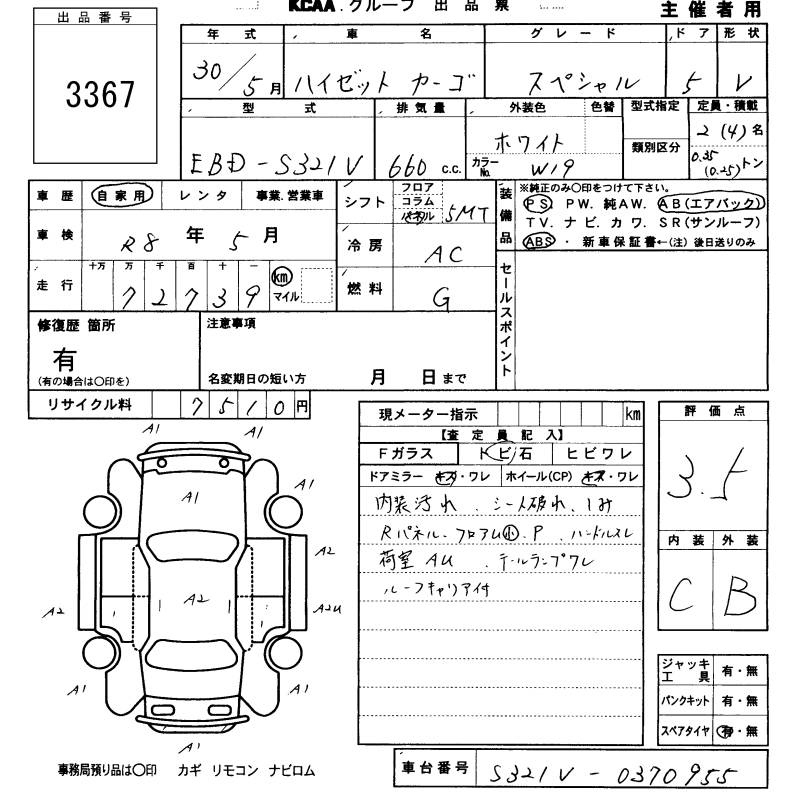 KCAA.グループ 出品票
主催者用
出品番号
3367
年式 車名 グレード ドア 形状
30/5月 ハイゼット カーゴ スペシャル 5 V
型式 排気量 外装色 色替 型式指定 定員・積載
EBD-S321V 660 c.c. ホワイト 類別区分 2(4)名
カラーNo. W19 0.35(0.25)トン
車歴 自家用 レンタ 事業.営業車
車検 R8年5月
走行 十万 万 千 百 十 一
72739 km マイル
シフト フロア コラム パネル 5MT
冷房 AC
燃料 G
装備品 ※純正のみ〇印をつけて下さい。
PS PW. 純AW. AB(エアバック)
TV. ナビ. カワ. SR(サンルーフ)
ABS・新車保証書←(注) 後日送りのみ
セールスポイント
修復歴 箇所
有
(有の場合は〇印を)
注意事項
名変期日の短い方 月 日まで
リサイクル料 7510円
現メーター指示 km
【査定員記入】
Fガラス トビ石 ヒビワレ
ドアミラー キズ・ワレ ホイール(CP) キズ・ワレ
内装汚れ、シート破れ、しみ
Rパネル、フロアム小、P、ハンドルスレ
荷室AU、テールランプワレ
ルーフキャリア付
評価点
3.5
内装 外装
C B
ジャッキ工具 有・無
パンクキット 有・無
スペアタイヤ 有・無
A1 A1
A1
A1 A1
A2
A2 A2 A2U
A1 A1
A1
事務局預り品は〇印 カギ リモコン ナビロム
車台番号 S321V-0370955